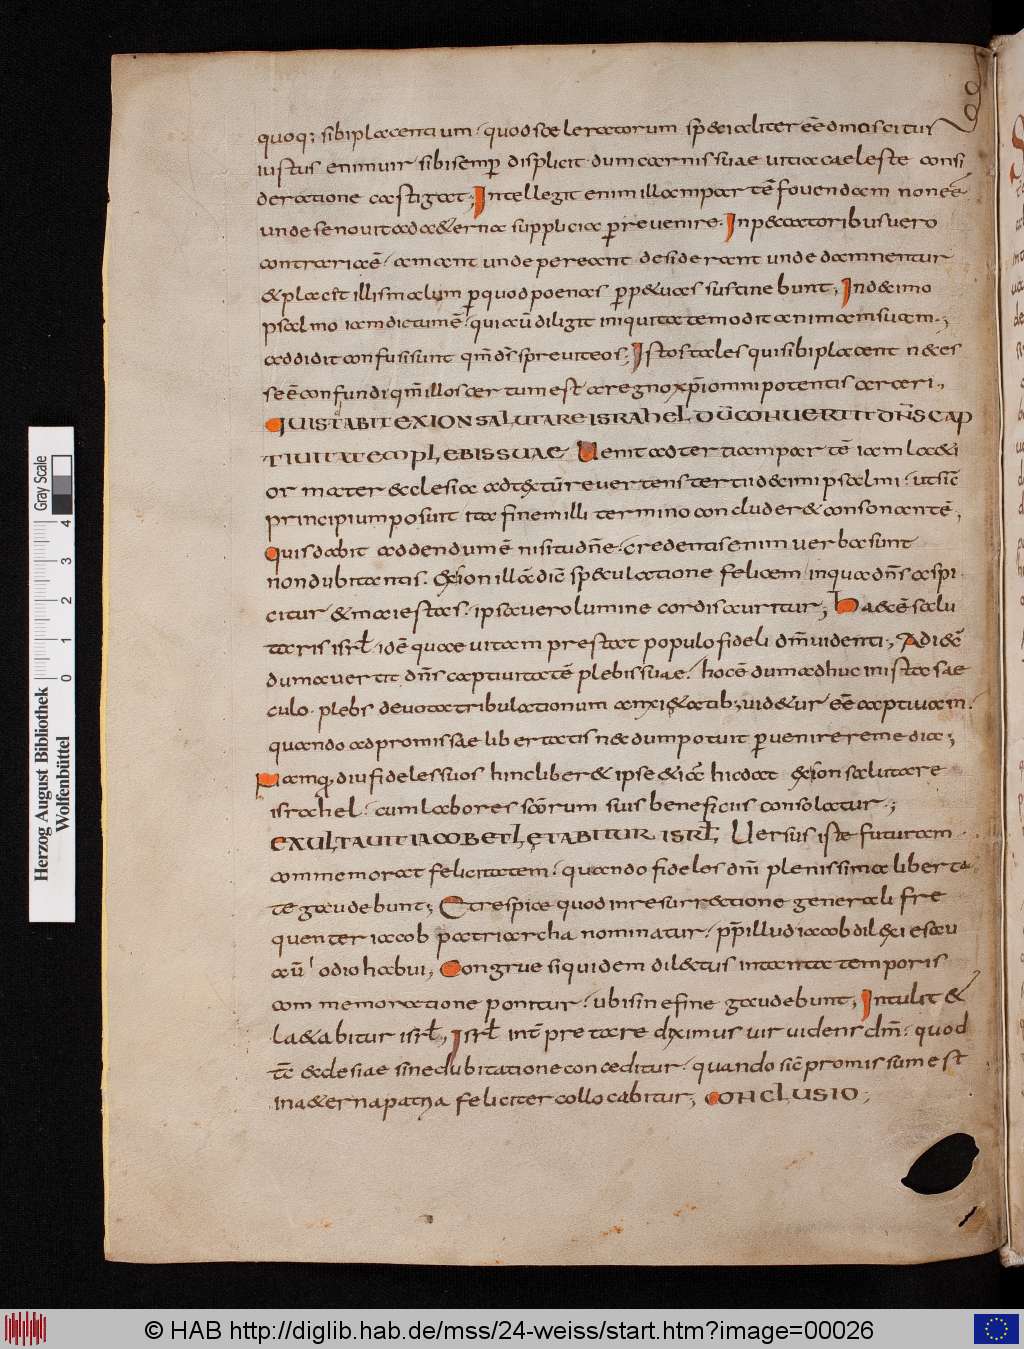 quoq; sibi placentium· quod sceleratorum specialiter eē dinoscitur
iustus enim uir sibi semp̄ displicit· dum carnis suae uitia caeleste consi
deratione castigat; Intellegit enim illam partē fouendam non eē·
unde se nouit ad aeterna supplicia p̄reuenire· In peccatoribus uero
contraria ē· amant unde pereant desiderant unde damnentur
& placet illis malum p̄ quod poenas p̄p&uas sustinebunt; In decimo
psalmo iam dictum ē· qui aū diligit iniquitatem odit animam suam·;
addidit confusi sunt qm̄ ds̄ spreuit eos; Istos tales qui sibi placent neces
se ē confundi qm̄ illos certum est a regno xp̄i omnipotentis arceri·,
QUIS DABIT EX SION SALUTARE ISRAHEL DŪ CONUERTIT DN̄S CAP
TIUITATEM PLEBIS SUAE Uenit ad tertiam partē iam laeti
or mater ecclesia ad textū reuertens tertii decimi psalmi· ut sic̄
principium posuit ita finem illi termino concluder& consonantē,
Quis dabit addendum ē nisi tu dn̄e· credentis enim uerba sunt
non dubitantis· Ex sion illā dic̄ speculatione felicem in qua dn̄s aspi
citur & maiestas· ipsa uero lumine cordis auritur; Haec ē salu
taris isrł idē quae uitam prestat populo fideli dm̄ uidenti; Adiec̄
dum auertit dn̄s captiuitatē plebis suae· hoc ē dum adhuc in ista sae
culo· plebs deuota tribulationum anxi&atib; uid&ur eē captiuam·
quando ad promissae libertatis necdum potuit p̄uenire remedia;
Namq, diu fideles suos hinc liber& ipse & iā hic dat ex sion salutare
israhel· cum labores scōrum suis beneficiis consolatur·;
EXULTAUIT IACOB ET LĘTABITUR ISRŁ Uersus iste futuram
commemorat felicitatem· quando fideles dn̄i plenissima liberta
te gaudebunt; Et respice quod in resurrectione generali fre
quenter iacob patriarcha nominatur· pp̄ illud iacob dilexi esau
aū odio habui; Congrue siquidem dilectus in tanta temporis
commemoratione ponitur· ubi sine fine gaudebunt; Intulit &
la&abitur isrł; Isrł int̄pretare diximus uir uidens dm̄· quod
tc̄ ecclesiae sine dubitatione conceditur· quando sic̄ promissum est
in aeterna patria feliciter collocabitur; CONCLUSIO;
Gray Scale
0 1 2 3 4
Herzog August Bibliothek
Wolfenbüttel
© HAB http://diglib.hab.de/mss/24-weiss/start.htm?image=00026